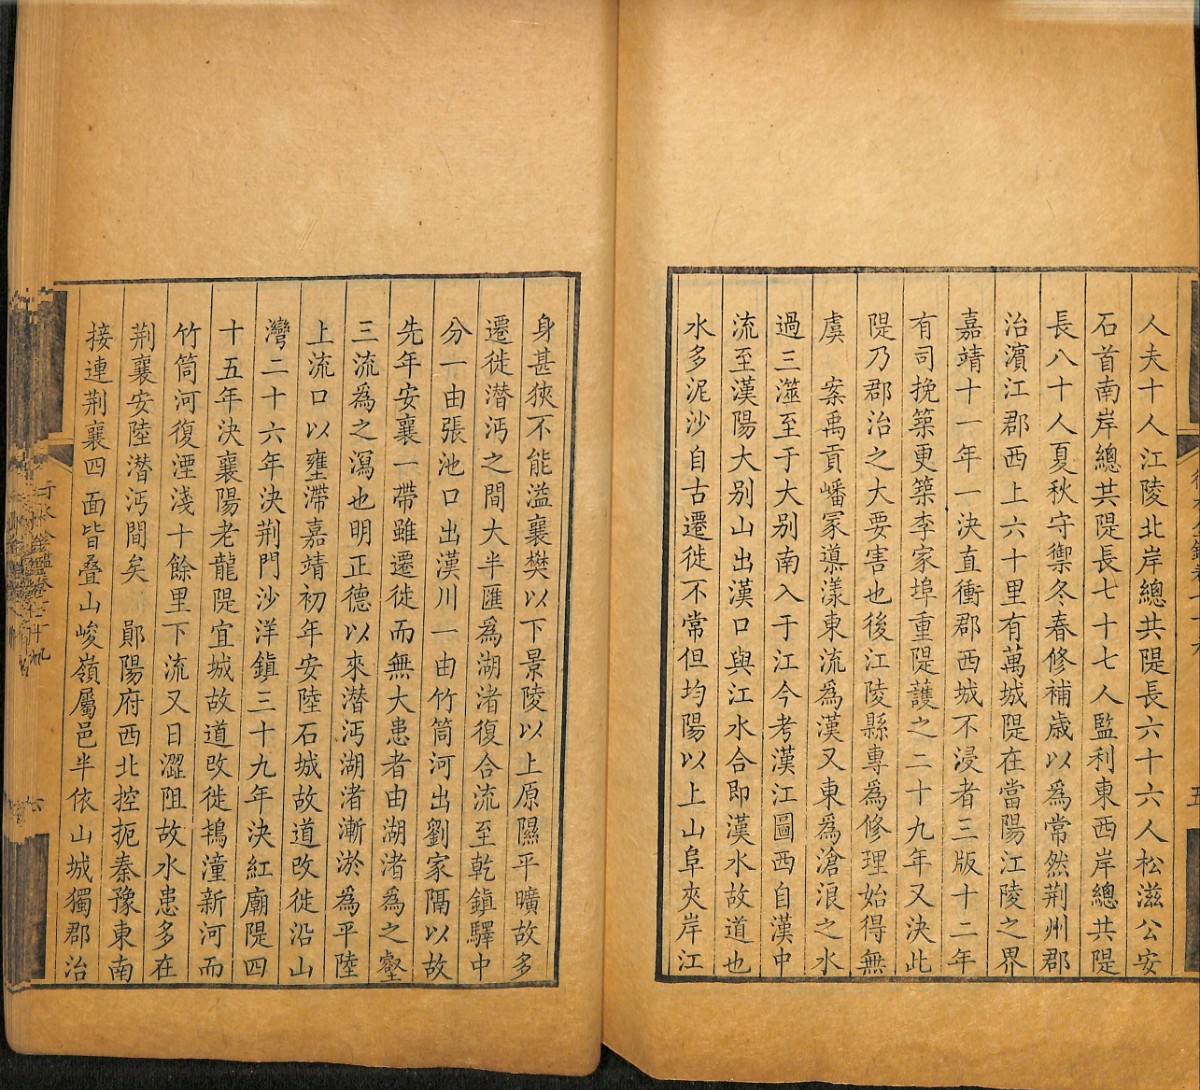 人夫十人江陵北岸總共隄長六十六人松滋公安
石首南岸總共隄長七十七人監利東西岸總共隄
長八十人夏秋守禦冬春修補歳以爲常然荆州郡
治濵江郡西上六十里有萬城隄在當陽江陵之界
嘉靖十一年一決直衝郡西城不浸者三版十二年
有司挽築更築李家埠重隄護之二十九年又決此
隄乃郡治之大要害也後江陵縣專爲修理始得無
虞　案禹貢嶓冢導漾東流爲漢又東爲滄浪之水
過三澨至于大别南入于江今考漢江圖西自漢中
流至漢陽大别山出漢口與江水合即漢水故道也
水多泥沙自古遷徙不常但均陽以上山阜夾岸江
身甚狹不能溢襄樊以下景陵以上原隰平曠故多
遷徙潜沔之間大半匯爲湖渚復合流至乾鎮驛中
分一由張池口出漢川一由竹筒河出劉家隔以故
先年安襄一帶雖遷徙而無大患者由湖渚爲之壑
三流爲之瀉也明正德以來潜沔湖渚漸淤爲平陸
上流口以壅滯嘉靖初年安陸石城故道改徙沿山
灣二十六年決荆門沙洋鎮三十九年決紅廟隄四
十五年決襄陽老龍隄宜城故道改徙鴇潼新河而
竹筒河復湮淺十餘里下流又日澀阻故水患多在
荆襄安陸潜沔間矣　鄖陽府西北控扼秦豫東南
接連荆襄四面皆叠山峻嶺屬邑半依山城獨郡治